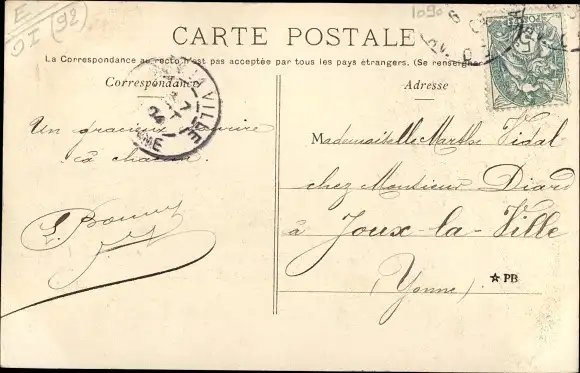 E
OI (92)
1090
CARTE POSTALE
La Correspondance au recto n'est pas acceptée par tous les pays étrangers. (Se renseigne
Correspondance
Adresse
LA VILLE
7
04
Un gracieux sourire
à chacun
L. Bonny
Mademoiselle Marthe Vidal
chez Monsieur Diard
à Joux-la-Ville
(Yonne)
★ PB